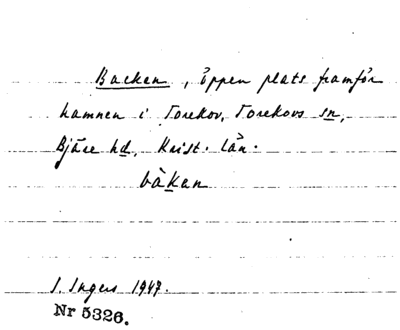 Backen, öppen plats framför
hamnen i Torekov, Torekovs sn,
Bjäre hd, Krist. län.
bàkan
I. Ingers 1947.
Nr 5326.